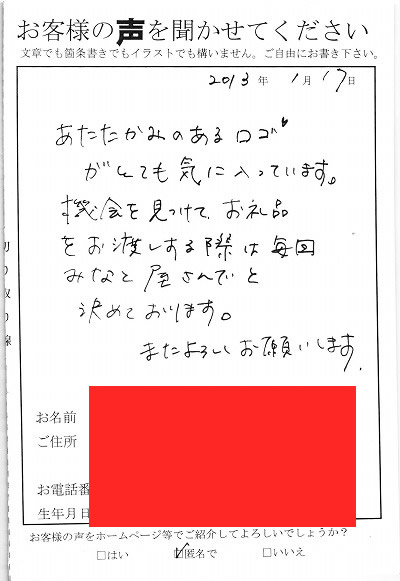 お客様の声を聞かせてください
文章でも箇条書きでもイラストでも構いません。ご自由にお書き下さい。
2013年 1月17日
あたたかみのあるロゴ
がとても気に入っています。
機会を見つけて、お礼品
をお渡しする際は毎回
みなと屋さんでと
決めております。
またよろしくお願いします。
切り取り線
お名前
ご住所
お電話番
生年月日
お客様の声をホームページ等でご紹介してよろしいでしょうか?
□はい ☑匿名で □いいえ